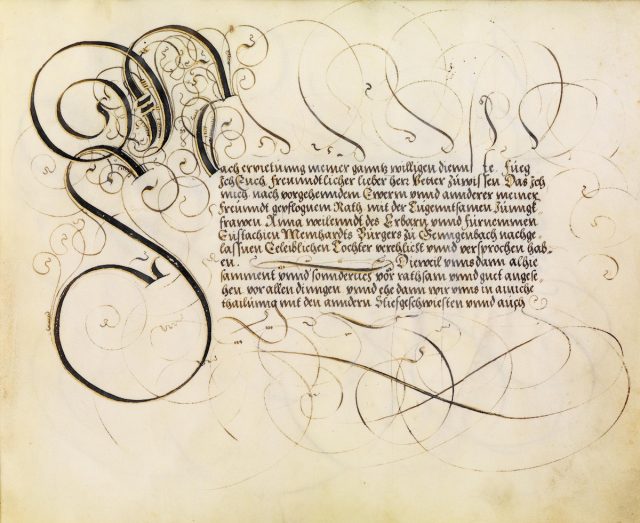 Nach erpietunng meiner ganntz willigen diennste. Fueg
Ich Euch freundtlicher lieber herr Vetter zuwissen Das Ich
mich nach vorgehenndem Ewerm unnd annderer meiner
freundt gepflognem Rath mit der Tugenntsamen Junngk
frawen Anna weilenndt des Erbarn unnd furnemmen
Eustachien Mennhardts Burgers zu Genngenbach nachge
lassnen Eeleiblichen Tochter verehlicht unnd versprochen hab
en. Dieweil unns dann alhie
samment unnd sonnderlich vor rathsam unnd guet angese
hen vor allen dinngen unnd ehe dann wir unns in ainiche
thailunng mit den anndern Stiefgeschwisten unnd auch